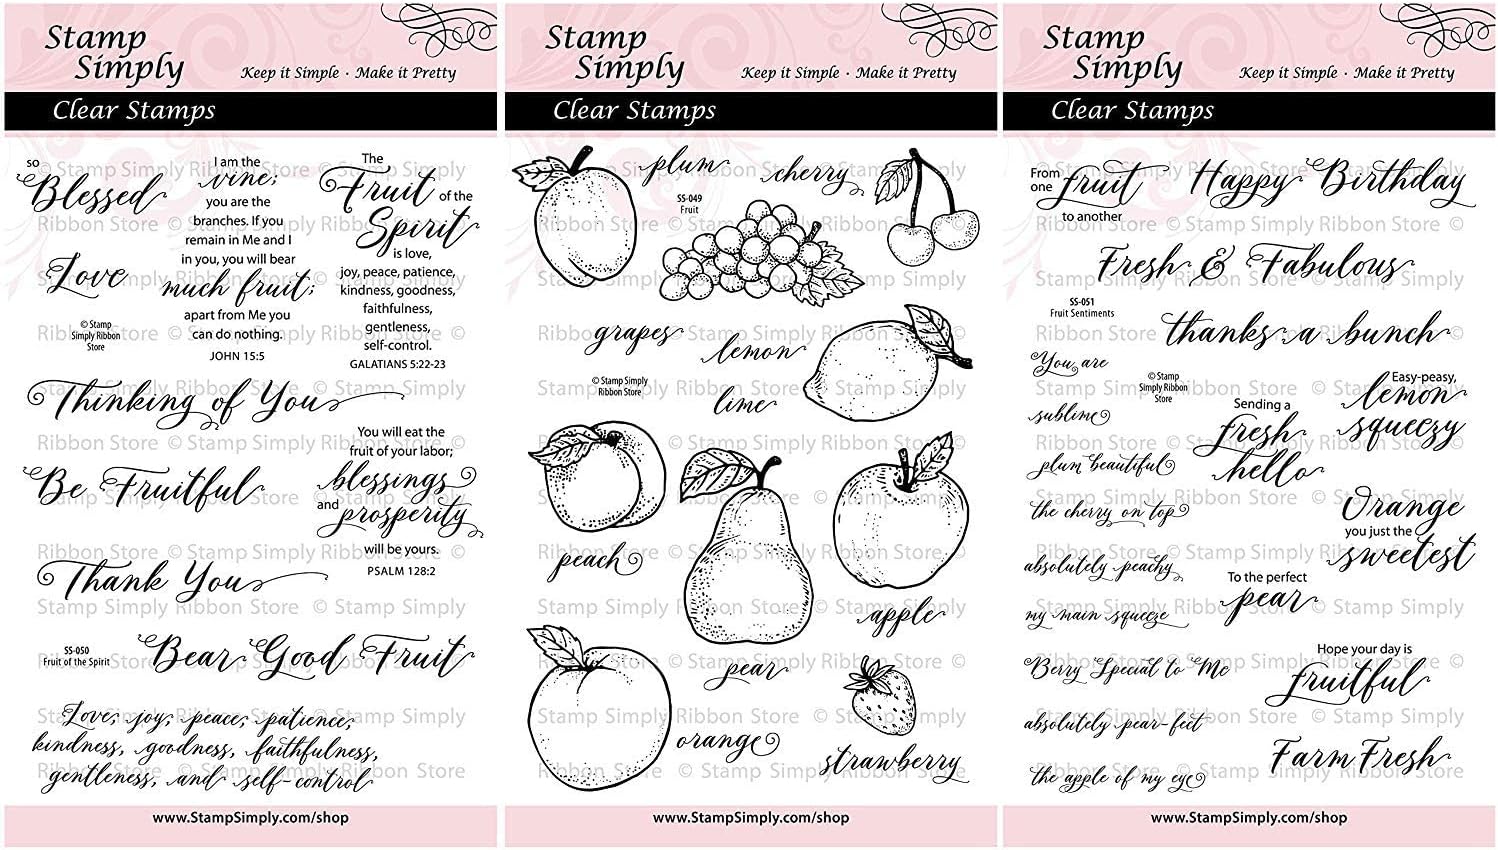 Stamp
Simply
Keep it Simple · Make it Pretty
Clear Stamps
so
Blessed
Love
© Stamp
Simply Ribbon
Store
I am the
vine;
you are the
branches. If you
remain in Me and I
in you, you will bear
much fruit;
apart from Me you
can do nothing.
JOHN 15:5
The
Fruit of the
Spirit
is love,
joy, peace, patience,
kindness, goodness,
faithfulness,
gentleness,
self-control.
GALATIANS 5:22-23
Thinking of You
You will eat the
fruit of your labor;
blessings
and
prosperity
will be yours.
PSALM 128:2
Be Fruitful
Thank You
SS-050
Fruit of the Spirit
Bear Good Fruit
Love, joy, peace, patience,
kindness, goodness, faithfulness,
gentleness, and self-control
© Stamp Simply Ribbon Store © Stamp Simply Ribbon Store ©
www.StampSimply.com/shop
Stamp
Simply
Keep it Simple · Make it Pretty
Clear Stamps
plum
cherry
SS-049
Fruit
grapes
lemon
© Stamp Simply
Ribbon Store
lime
peach
apple
pear
orange
strawberry
© Stamp Simply Ribbon Store © Stamp Simply Ribbon Store ©
www.StampSimply.com/shop
Stamp
Simply
Keep it Simple · Make it Pretty
Clear Stamps
From
one fruit
to another
Happy Birthday
Fresh & Fabulous
SS-051
Fruit Sentiments
thanks a bunch
You are
© Stamp
Simply Ribbon
Store
sublime
plum beautiful
the cherry on top
absolutely peachy
my main squeeze
Berry Special to Me
absolutely pear-fect
the apple of my eye
Sending a
fresh
hello
Easy-peasy,
lemon
squeezy
Orange
you just the
sweetest
To the perfect
pear
Hope your day is
fruitful
Farm Fresh
© Stamp Simply Ribbon Store © Stamp Simply Ribbon Store ©
www.StampSimply.com/shop